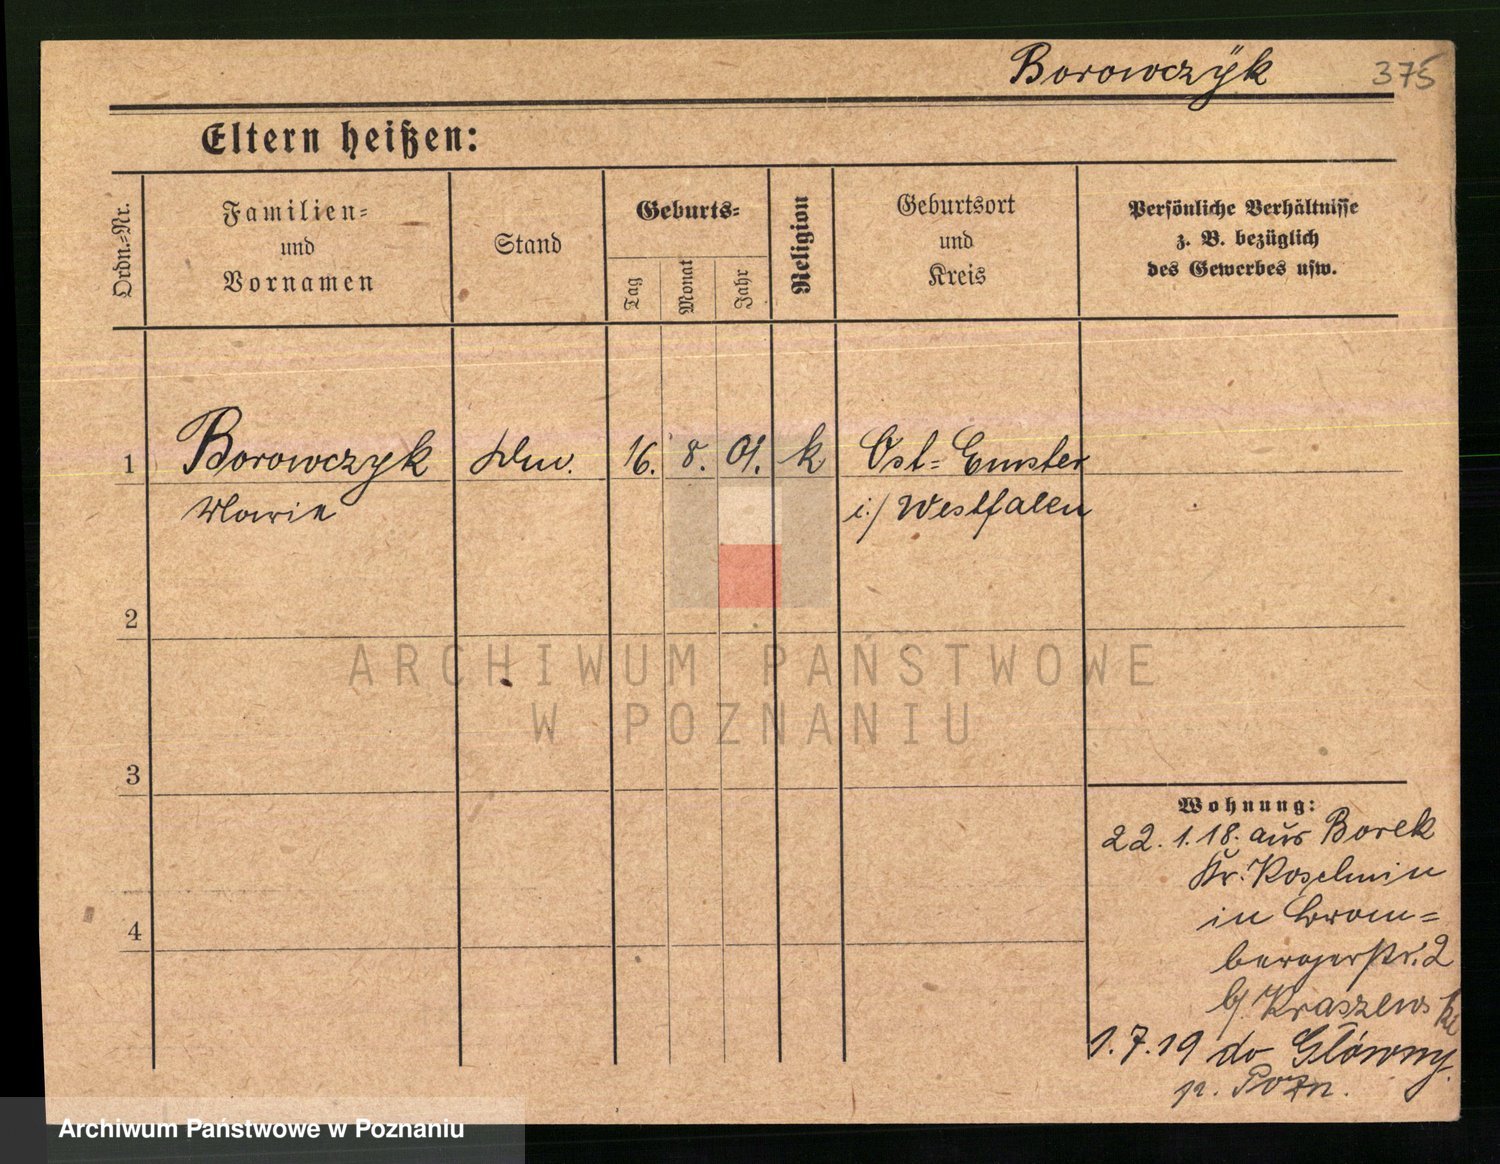 Borowczÿk 375
Eltern heißen:
Ordn.-Nr.
Familien-
und
Vornamen
Stand
Geburts-
Tag
Monat
Jahr
Religion
Geburtsort
und
Kreis
Persönliche Verhältnisse
z. B. bezüglich
des Gewerbes usw.
1 Borowczyk 16. 8. 01. k Ost=Emster
Marie i./Westfalen
2
ARCHIWUM PAŃSTWOWE
W POZNANIU
3
Wohnung:
22. 1. 18. aus Borek
Kr. Koschmin
in Brom=
bergerstr. 2
b/ Kraszewski
4
1. 7. 19 do Główny
p. Pozn.
Archiwum Państwowe w Poznaniu